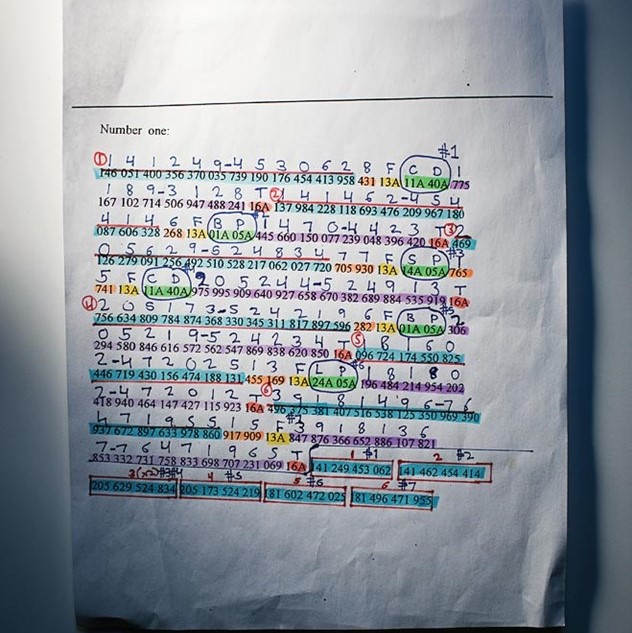 Number one:
#1
① 1 4 1 2 4 9-4 5 3 0 6 2 8 F C D 1
146 051 400 356 370 035 739 190 176 454 413 958 431 13A 11A 40A 775
1 8 9-3 1 2 8 T ② 1 4 1 4 6 2-4 5 4
167 102 714 506 947 488 241 16A 137 984 228 118 693 476 209 967 180
4 1 4 6 F B P 1 4 7 0-4 4 2 3 T ③
087 606 328 268 13A 01A 05A 445 660 150 077 239 048 396 420 16A 469
0 5 6 2 9-5 2 4 8 3 4 7 7 F S P #3
126 279 091 256 492 510 528 217 062 027 720 705 930 13A 14A 05A 765
5 F C D 2 0 5 2 4 4-5 2 4 9 1 3 T
741 13A 11A 40A 975 995 909 640 927 658 670 382 689 884 535 919 16A
④ 2 0 5 1 7 3-5 2 4 2 1 9 6 F B P #5 2
756 634 809 784 874 368 330 345 311 817 897 596 282 13A 01A 05A 306
0 5 2 1 9-5 2 4 2 3 4 T ⑤ 1 8 1 6 0
294 580 846 616 572 562 547 869 838 620 850 16A 096 724 174 550 825
2-4 7 2 0 2 5 1 3 F L P #6 1 8 1 8 0
446 719 430 156 474 188 131 455 169 13A 24A 05A 196 484 214 954 202
2-4 7 2 0 1 2 T ⑥ 3 9 1 8 1 4 9 6-7 6
418 940 464 147 427 115 923 16A 496 375 381 407 516 538 125 350 969 390
4 7 1 9 5 5 1 5 F #7 3 9 1 8 1 3 6
937 672 897 633 978 860 917 909 13A 847 876 366 652 886 107 821
7-7 6 4 7 1 9 6 5 T 1 #1 2 #2
853 332 731 758 833 698 707 231 069 16A 141 249 453 062 141 462 454 414
3 (x2) #3#4 4 #5 5 #6 6 #7
205 629 524 834 205 173 524 219 181 602 472 025 181 496 471 955